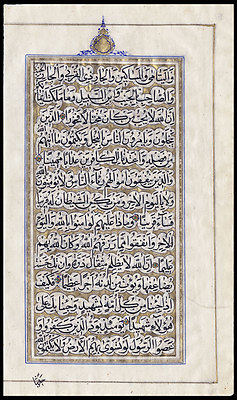 واليتامى والمساكين والجار ذي القربى والجار
الجنب والصاحب بالجنب وابن السبيل وما ملكت
ايمانكم ان الله لا يحب من كان مختالا فخورا الذين
يبخلون ويأمرون الناس بالبخل ويكتمون ما آتاهم الله
من فضله واعتدنا للكافرين عذابا مهينا
والذين ينفقون اموالهم رئاء الناس ولا يؤمنون بالله
ولا باليوم الآخر ومن يكن الشيطان له قرينا
فساء قرينا وماذا عليهم لو آمنوا بالله واليوم
الآخر وانفقوا مما رزقهم الله وكان الله بهم
عليما ان الله لا يظلم مثقال ذرة وان تك حسنة
يضاعفها ويؤت من لدنه اجرا عظيما فكيف
اذا جئنا من كل امة بشهيد وجئنا بك على
هؤلاء شهيدا يومئذ يود الذين كفروا و
عصوا الرسول لو تسوى بهم الارض ولا يكتمون